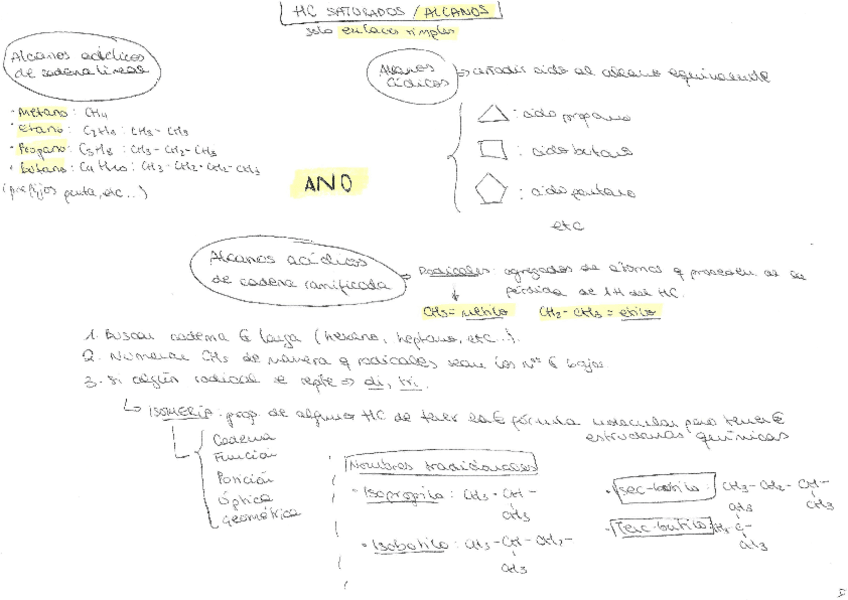 HC SATURADOS / ALCANOS
solo enlaces simples
Alcanos acíclicos
de cadena lineal
· Metano: CH4
· Etano: C2H6: CH3-CH3
· Propano: C3H8: CH3-CH2-CH3
· butano: C4H10: CH3-CH2-CH2-CH3
(prefijos penta, etc..)
Alcanos
Cíclicos
⇒ añadir ciclo al alcano equivalente
: ciclo propano
: ciclo butano
: ciclo pentano
etc
ANO
Alcanos acíclicos
de cadena ramificada
→ Radicales: agregados de átomos q proceden de la
pérdida de 1H del HC.
CH3 = metilo CH2-CH3 = etilo
1. Buscar cadena larga (hexano, heptano, etc..).
2. Numerar CHs de manera q radicales sean los nos bajos
3. Si algún radical se repite ⇒ di, tri.
↳ ISOMERÍA: prop. de algunos HC de tener fórmula molecular pero tener
estructuras químicas
Cadena
Función
Posición
Óptica
Geométrica
Nombres tradicionales
· Isopropilo: CH3-CH-
CH3
· Isobutilo: CH3-CH-CH2-
CH3
· sec-butilo: CH3-CH2-CH-
CH3
CH3
· Terc-butilo: CH3-C-
CH3